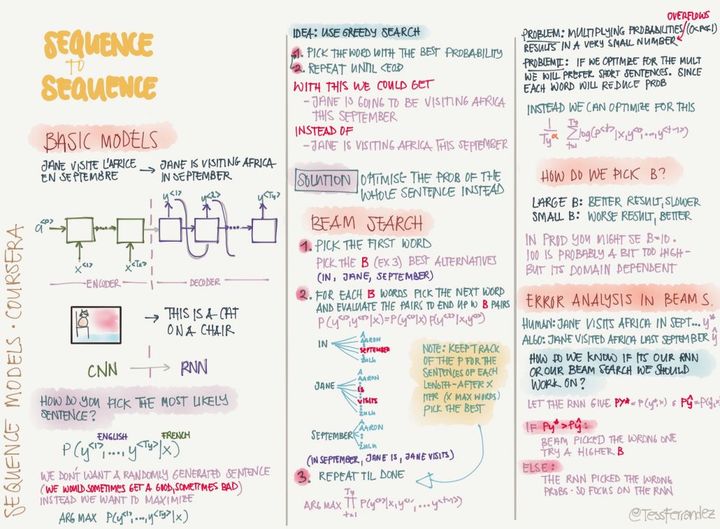 SEQUENCE MODELS · COURSERA
SEQUENCE
TO
SEQUENCE
BASIC MODELS
JANE VISITE L'AFRICE
EN SEPTEMBRE
→ JANE IS VISITING AFRICA
IN SEPTEMBER
y<1> y<2> y<Ty>
a<0>
x<1> x<Tx>
ENCODER DECODER
THIS IS A CAT
ON A CHAIR
CNN RNN
HOW DO YOU PICK THE MOST LIKELY
SENTENCE?
ENGLISH FRENCH
P(y<1>, ..., y<Ty>|x)
WE DON'T WANT A RANDOMLY GENERATED SENTENCE
(WE WOULD SOMETIMES GET A GOOD, SOMETIMES BAD)
INSTEAD WE WANT TO MAXIMIZE
ARG MAX P(y<1>, ..., y<Ty>|x)
IDEA: USE GREEDY SEARCH
1. PICK THE WORD WITH THE BEST PROBABILITY
2. REPEAT UNTIL <EOD
WITH THIS WE COULD GET
- JANE IS GOING TO BE VISITING AFRICA
THIS SEPTEMBER
INSTEAD OF
- JANE IS VISITING AFRICA THIS SEPTEMBER
SOLUTION OPTIMISE THE PROB OF THE
WHOLE SENTENCE INSTEAD
BEAM SEARCH
1. PICK THE FIRST WORD
PICK THE B (EX 3) BEST ALTERNATIVES
(IN, JANE, SEPTEMBER)
2. FOR EACH B WORDS PICK THE NEXT WORD
AND EVALUATE THE PAIRS TO END UP W B PAIRS
P(y<1>, y<2>|x) = P(y<1>|x) P(y<2>|x, y<1>)
IN
A
AARON
SEPTEMBER
ZULU
JANE
A
AARON
IS
VISITS
ZULU
SEPTEMBER
A
AARON
ZULU
NOTE: KEEP TRACK
OF THE P FOR THE
SENTENCES OF EACH
LENGTH - AFTER X
ITER (X MAX WORDS)
PICK THE BEST
(IN SEPTEMBER, JANE IS, JANE VISITS)
3. REPEAT TIL DONE
ARG MAX
PROBLEM: MULTIPLYING PROBABILITIES (0<P<1)
OVERFLOWS
RESULTS IN A VERY SMALL NUMBER
PROBLEM: IF WE OPTIMIZE FOR THE MULT
WE WILL PREFER SHORT SENTENCES. SINCE
EACH WORD WILL REDUCE PROB
INSTEAD WE CAN OPTIMIZE FOR THIS
HOW DO WE PICK B?
LARGE B: BETTER RESULT, SLOWER
SMALL B: WORSE RESULT, BETTER
IN PROD YOU MIGHT SE B=10.
100 IS PROBABLY A BIT TOO HIGH -
BUT ITS DOMAIN DEPENDENT
ERROR ANALYSIS IN BEAM S.
HUMAN: JANE VISITS AFRICA IN SEPT... y*
ALGO: JANE VISITED AFRICA LAST SEPTEMBER ŷ
HOW DO WE KNOW IF ITS OUR RNN
OR OUR BEAM SEARCH WE SHOULD
WORK ON?
LET THE RNN GIVE Py* = P(y*|x) & Pŷ = P(ŷ|x)
IF Py* > Pŷ:
BEAM PICKED THE WRONG ONE
TRY A HIGHER B
ELSE:
THE RNN PICKED THE WRONG
PROBS - SO FOCUS ON THE RNN
@TessFerrandez